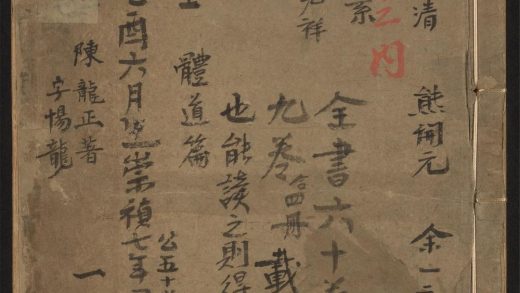 清
熊開元 余一
系
祥
全書六十卷
九卷合四冊 載
也能讀之則得
體道篇
公五十
酉六月 崇禎七年
陳龍正著 一
字惕龍